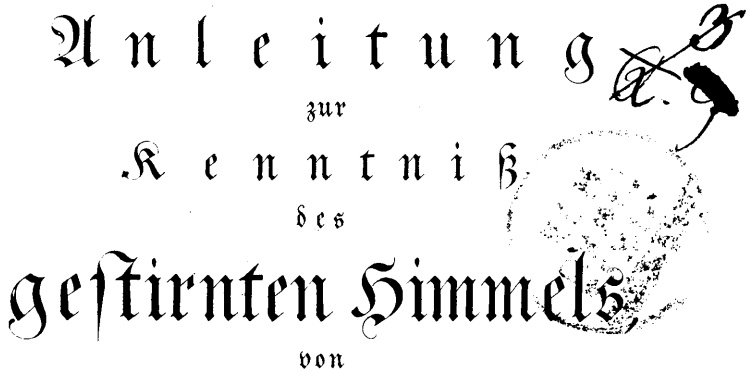 Anleitung
zur
Kenntniß
des
geſtirnten Himmels,
von